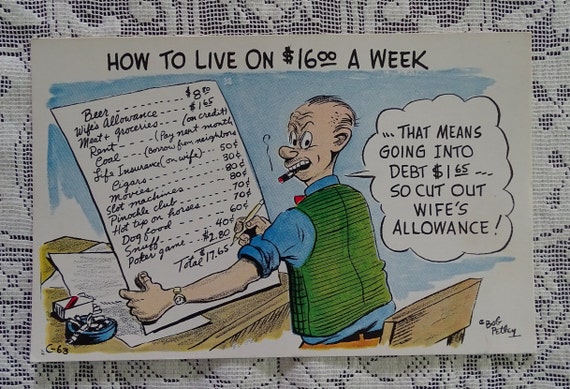 HOW TO LIVE ON $16.00 A WEEK
Beer $8.80
Wife's Allowance $1.65
Meat + groceries (on credit)
Rent (Pay next month)
Coal (Borrow from neighbors)
Life Insurance (on wife) 50¢
Cigars 80¢
Movies 80¢
Slot machines 70¢
Pinockle club 70¢
Hot tip on horses 60¢
Dog food
Snuff 40¢
Poker game $2.80
Total $17.65
...THAT MEANS
GOING INTO
DEBT $1.65 ...
SO CUT OUT
WIFE'S
ALLOWANCE!
©Bob
Petley
C-63